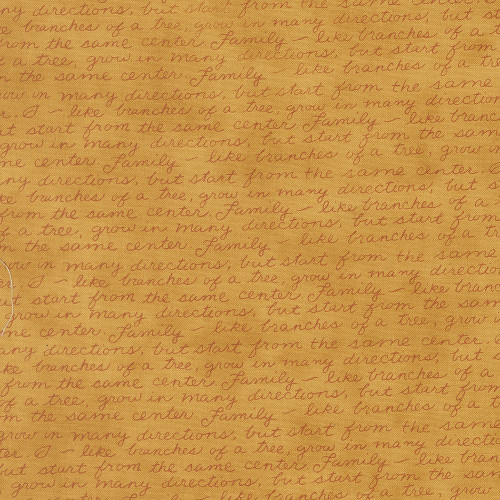 ny directions, but start from the same center.
branches of a tree, grow in many directions, but s
from the same center. Family - like branches of a t
f a tree, grow in many directions, but start from
n the same center. Family - like branches of a tre
ow in many directions, but start from the same
r. - like branches of a tree, grow in many direction
ut start from the same center. Family - like branc
grow in many directions, but start from the sam
me center. Family - like branches of a tree, grow in
ny directions, but start from the same center.
ke branches of a tree, grow in many directions, but s
from the same center. Family - like branches of a
f a tree, grow in many directions, but start from
m the same center. Family - like branches of a tr
ow in many directions, but start from the same
er. - like branches of a tree, grow in many direction
ut start from the same center. Family - like branc
grow in many directions, but start from the sam
me center. Family - like branches of a tree, grow
any directions, but start from the same center.
ke branches of a tree, grow in many directions, but
from the same center. Family - like branches of a
of a tree, grow in many directions, but start from
m the same center. Family - like branches of a t
grow in many directions, but start from the same
ter. - like branches of a tree, grow in many directio
but start from the same center. Family - like bran
grow in many directions, but start from the sam
center. Family - like branches of a tree, grow